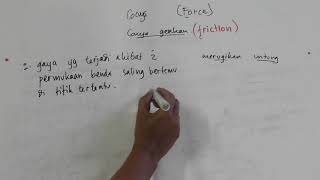 Gaya (Force)
Gaya gesekan (friction)
gaya yg terjadi akibat 2 merugikan untung
permukaan benda saling bertemu
di titik tertentu.